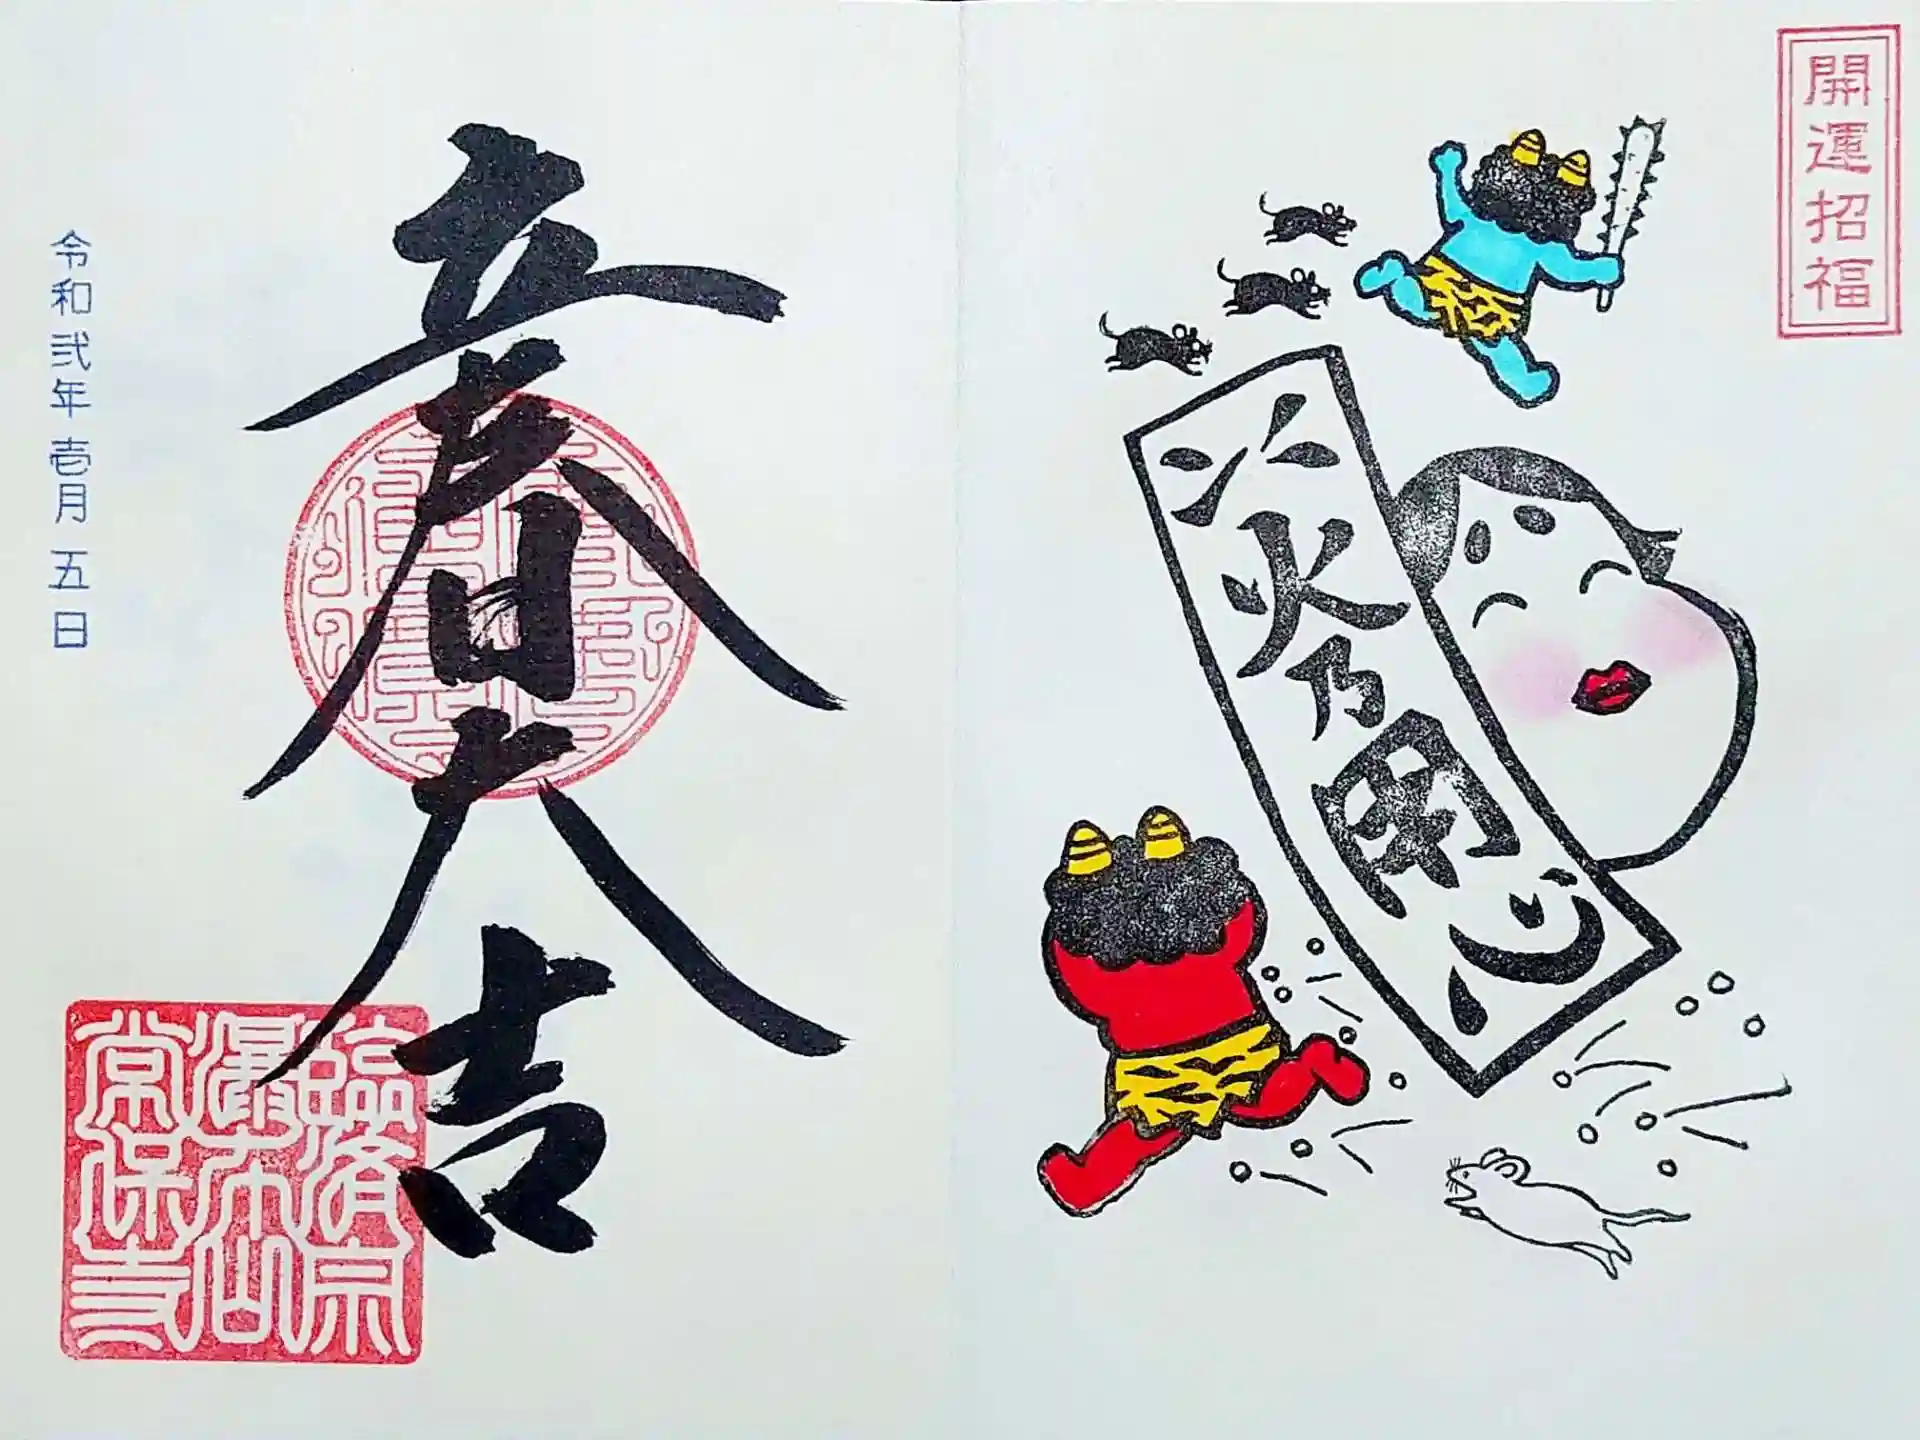 開運招福
火乃用心
立春大吉
令和弐年壱月五日
臨済宗
瀑布山
常保寺